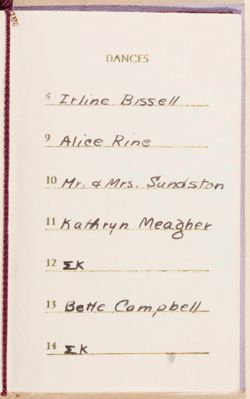 DANCES
8 Irline Bissell
9 Alice Rine
10 Mr. & Mrs. Sundston
11 Kathryn Meagher
12 ΣK
13 Bette Campbell
14 ΣK